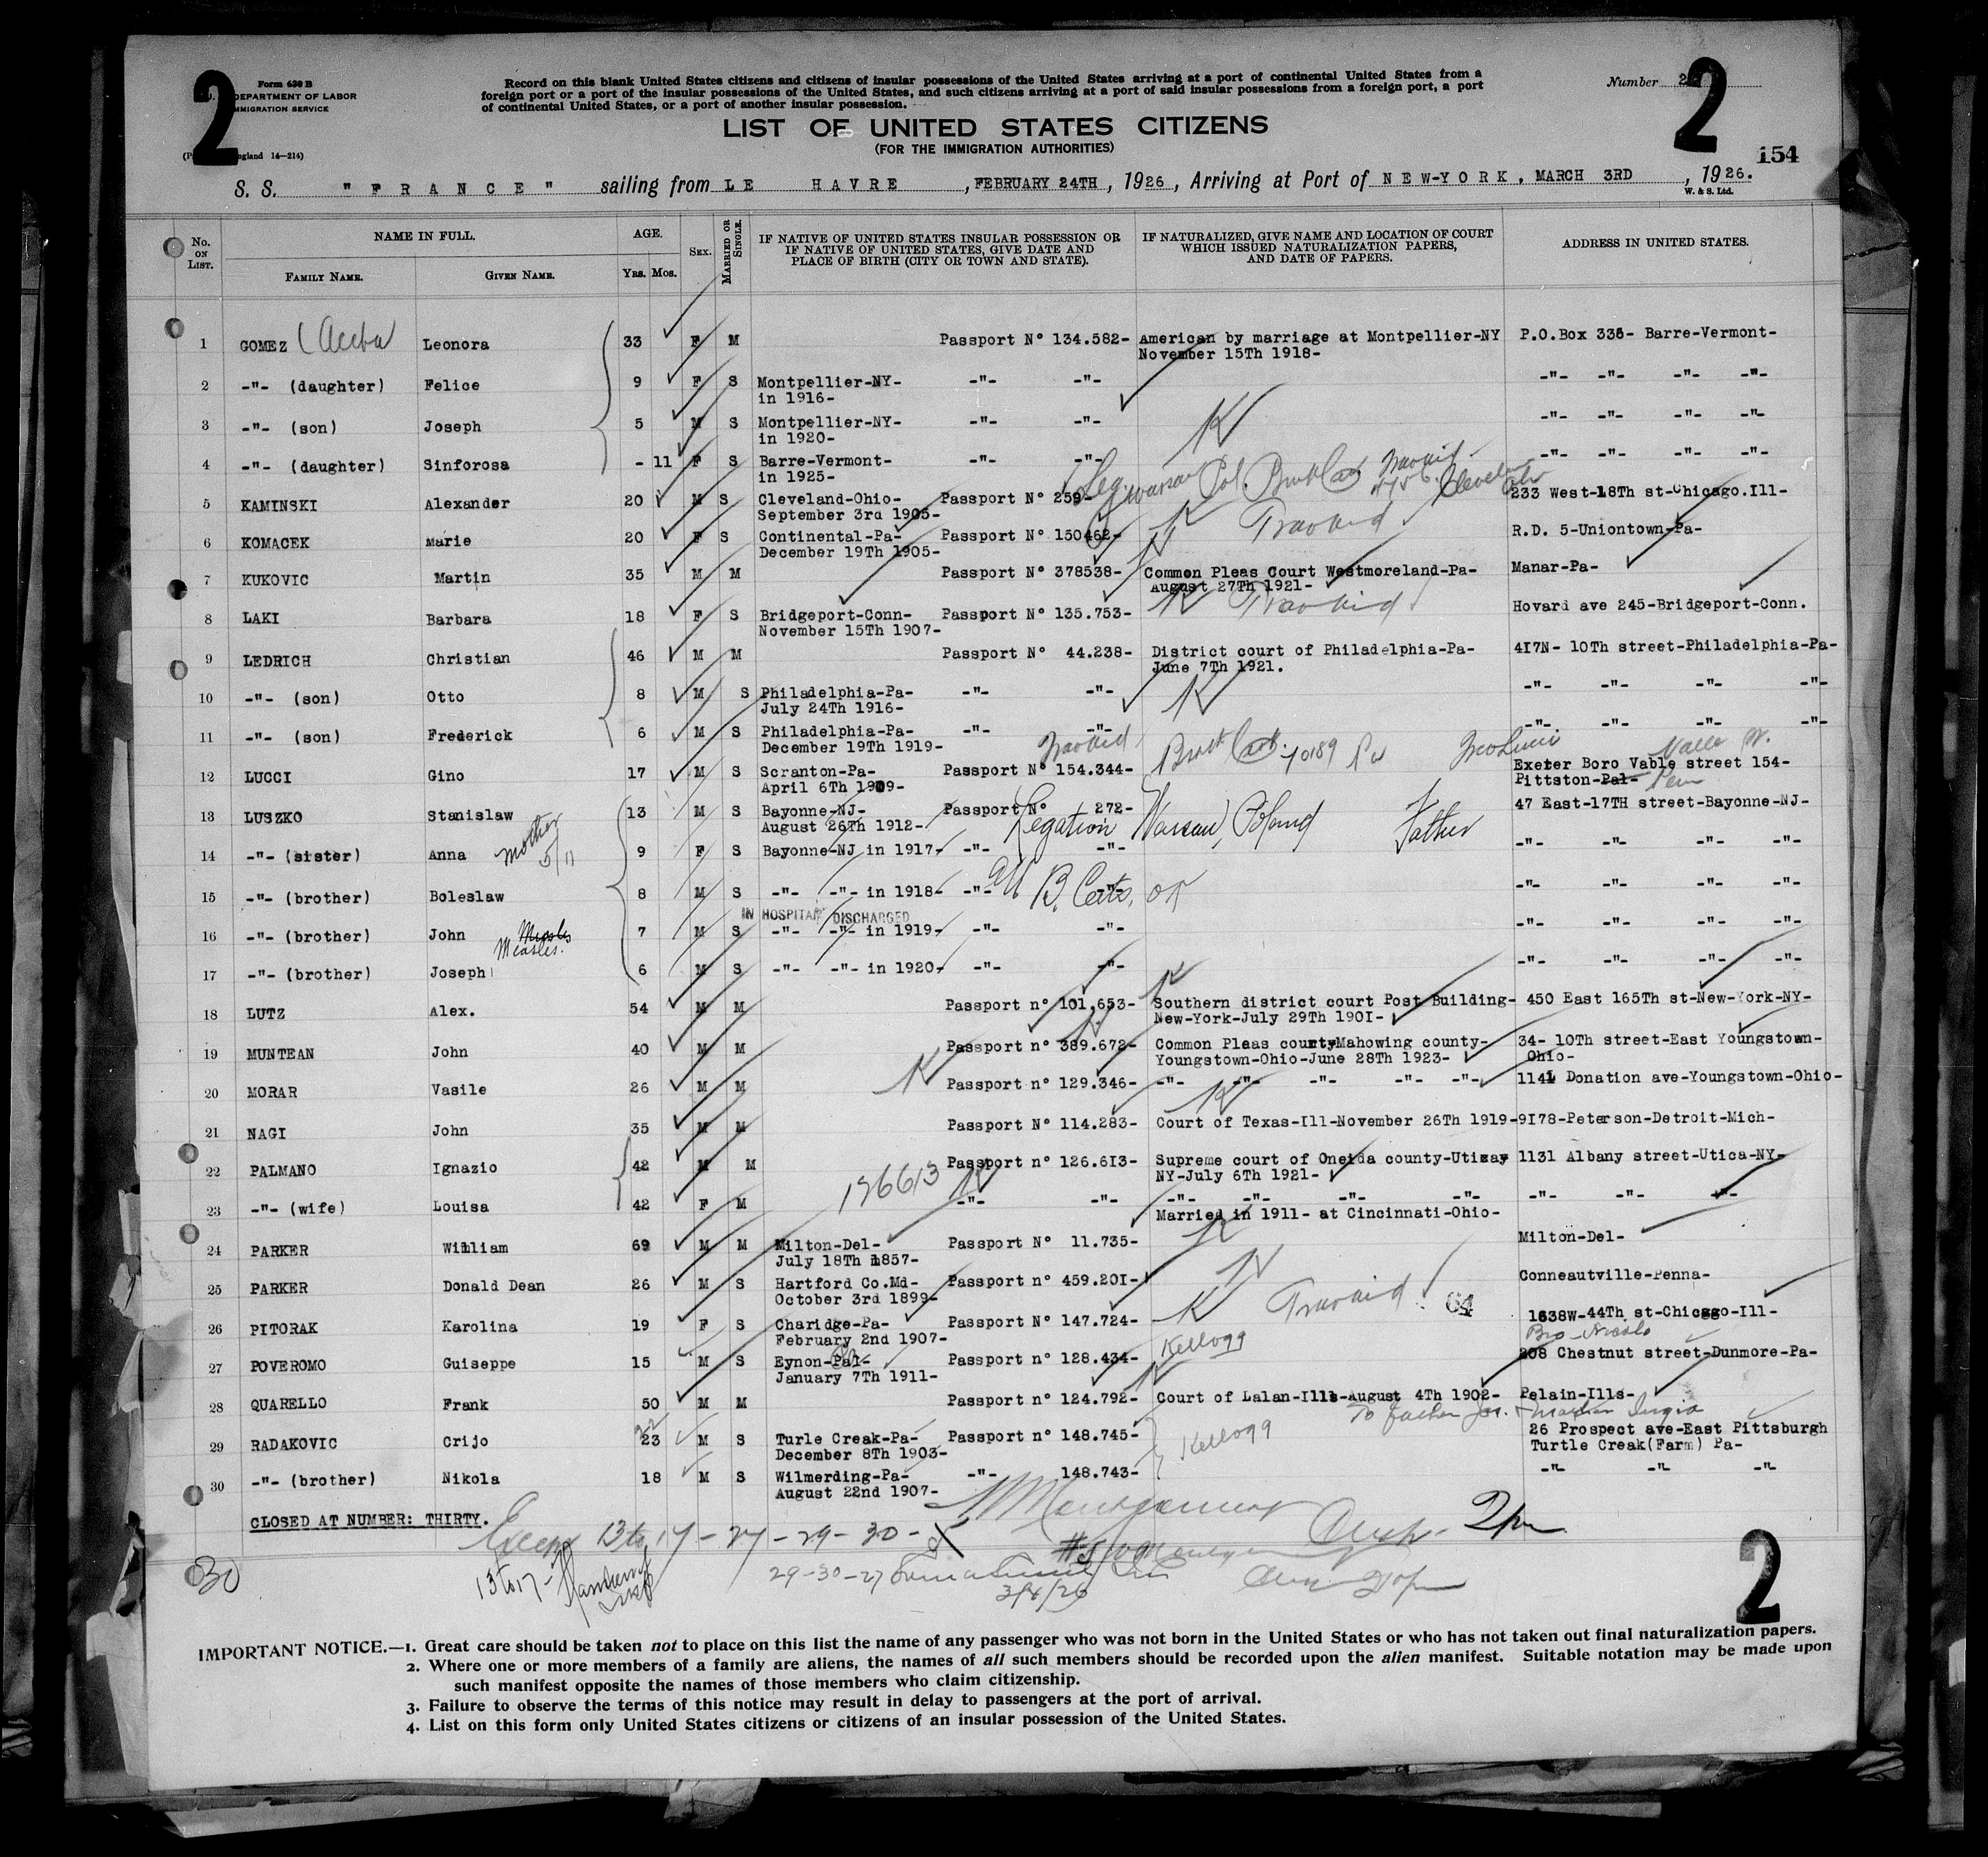 2
2
Form 630 B
DEPARTMENT OF LABOR
IMMIGRATION SERVICE
Record on this blank United States citizens and citizens of insular possessions of the United States arriving at a port of continental United States from a
foreign port or a port of the insular possessions of the United States, and such citizens arriving at a port of said insular possessions from a foreign port, a port
of continental United States, or a port of another insular possession.
Number
LIST OF UNITED STATES CITIZENS
(FOR THE IMMIGRATION AUTHORITIES)
154
S. S. "FRANCE" sailing from LE HAVRE, FEBRUARY 24TH, 1926, Arriving at Port of NEW-YORK, MARCH 3RD, 1926.
W. & S. Ltd.
No. ON LIST. NAME IN FULL. AGE. SEX. MARRIED OR SINGLE. IF NATIVE OF UNITED STATES INSULAR POSSESSION OR IF NATIVE OF UNITED STATES, GIVE DATE AND PLACE OF BIRTH (CITY OR TOWN AND STATE). IF NATURALIZED, GIVE NAME AND LOCATION OF COURT WHICH ISSUED NATURALIZATION PAPERS, AND DATE OF PAPERS. ADDRESS IN UNITED STATES.
FAMILY NAME. GIVEN NAME. YRS. MOS.
1 GOMEZ Leonora 33 F M Passport N° 134.582- American by marriage at Montpellier-NY P.O.Box 336- Barre-Vermont-
November 15Th 1918-
2 -"- (daughter) Felice 9 F S Montpellier-NY- -"- -"- -"- -"- -"- -"-
in 1916-
3 -"- (son) Joseph 5 M S Montpellier-NY- -"- -"- -"- -"- -"- -"-
in 1920-
4 -"- (daughter) Sinforosa - 11 F S Barre-Vermont- -"- -"- -"- -"- -"- -"-
in 1925-
Leg. Warsaw Pol.
5 KAMINSKI Alexander 20 M S Cleveland-Ohio- Passport N° 259- 233 West-18Th st-Chicago.Ill-
September 3rd 1905-
6 KOMACEK Marie 20 F S Continental-Pa- Passport N° 150462- R.D. 5-Uniontown-Pa-
December 19Th 1905-
7 KUKOVIC Martin 35 M M Passport N° 378538- Common Pleas Court Westmoreland-Pa- Manar-Pa-
August 27Th 1921-
8 LAKI Barbara 18 F S Bridgeport-Conn- Passport N° 135.753- Hovard ave 245-Bridgeport-Conn.
November 15Th 1907-
9 LEDRICH Christian 46 M M Passport N° 44.238- District court of Philadelphia-Pa- 4I7N- 10Th street-Philadelphia-Pa-
June 7Th 1921.
10 -"- (son) Otto 8 M S Philadelphia-Pa- -"- -"- -"- -"- -"- -"-
July 24Th 1916-
11 -"- (son) Frederick 6 M S Philadelphia-Pa- -"- -"- -"- -"- -"- -"-
December 19Th 1919-
12 LUCCI Gino 17 M S Scranton-Pa- Passport N° 154.344- Exeter Boro Vable street 154-
April 6Th 1909- Pittston-Pal-
13 LUSZKO Stanislaw 13 M S Bayonne-NJ- Passport N° 272- 47 East-17TH street-Bayonne-NJ-
August 26Th 1912- Legation Warsaw, Poland Father
14 -"- (sister) Anna Mother 9 F S Bayonne-NJ in 1917- -"- -"- -"- -"- -"- -"-
15 -"- (brother) Boleslaw 8 M S -"- -"- in 1918- -"- -"- -"- -"- -"- -"-
all B. Certs. OK
IN HOSPITAL DISCHARGED
16 -"- (brother) John 7 M S -"- -"- in 1919- -"- -"- -"- -"- -"- -"-
Measles.
17 -"- (brother) Joseph 6 M S -"- -"- in 1920- -"- -"- -"- -"- -"- -"-
18 LUTZ Alex. 54 M M Passport n° 101,653- Southern district court Post Building- 450 East 165Th st-New-York-NY-
New-York-July 29Th 190I-
19 MUNTEAN John 40 M M Passport n° 389.672- Common Pleas county Mahowing county- 34- 10Th street-East Youngstown-
Youngstown-Ohio-June 28Th 1923- Ohio-
20 MORAR Vasile 26 M M Passport n° 129.346- -"- -"- -"- -"- -"- 1141 Donation ave-Youngstown-Ohio-
21 NAGI John 35 M M Passport N° 114.283- Court of Texas-Ill-November 26Th 1919- 9I78-Peterson-Detroit-Mich-
22 PALMANO Ignazio 42 M M Passport n° 126.6I3- Supreme court of Oneida county-Utica 1131 Albany street-Utica-NY-
NY-July 6Th 1921-
126613
23 -"- (wife) Louisa 42 F M -"- -"- -"- -"- -"- -"- -"- -"- -"-
Married in 1911- at Cincinnati-Ohio-
24 PARKER William 69 M M Milton-Del- Passport N° 11.735- Milton-Del-
July 18Th 1857-
25 PARKER Donald Dean 26 M S Hartford Co.Md- Passport n° 459.20I- Conneautville-Penna-
October 3rd 1899-
64
26 PITORAK Karolina 19 F S Charidge-Pa- Passport N° 147.724- 1638W-44Th st-Chicago-Ill-
February 2nd 1907-
27 POVEROMO Guiseppe 15 M S Eynon-Pal- Passport n° 128.434- Kellogg 208 Chestnut street-Dunmore-Pa-
January 7Th 1911-
28 QUARELLO Frank 50 M M Passport n° 124.792- Court of Lalan-Ills-August 4Th 1902- Pelain-Ills-
29 RADAKOVIC Crijo 23 M S Turle Creak-Pa- Passport n° 148.745- Kellogg 26 Prospect ave-East Pittsburgh
December 8Th 1903- Turtle Creak(Farm) Pa-
30 -"- (brother) Nikola 18 M S Wilmerding-Pa- -"- 148.743- -"- -"- -"-
August 22nd 1907-
CLOSED AT NUMBER: THIRTY.
Except 13 to 17 - 27 - 29 - 30 -
30
13 to 17 -
29-30-27
3/4/26
2
IMPORTANT NOTICE.—1. Great care should be taken not to place on this list the name of any passenger who was not born in the United States or who has not taken out final naturalization papers.
2. Where one or more members of a family are aliens, the names of all such members should be recorded upon the alien manifest. Suitable notation may be made upon
such manifest opposite the names of those members who claim citizenship.
3. Failure to observe the terms of this notice may result in delay to passengers at the port of arrival.
4. List on this form only United States citizens or citizens of an insular possession of the United States.